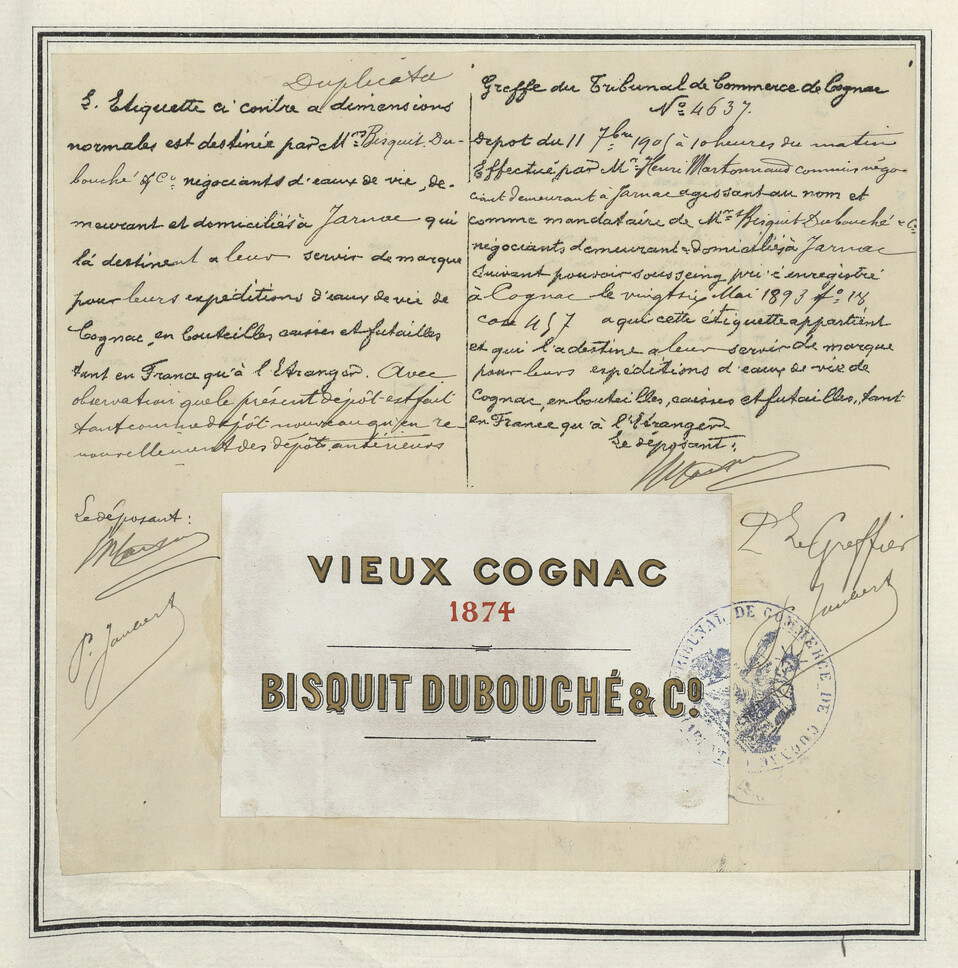 Duplicata
L'Etiquette ci contre a dimensions
normales est destinée par Mrs Bisquit Du-
bouché & Cie négociants d'eaux de vie, de-
meurant et domiciliés à Jarnac qui
la destinent a leur servir de marque
pour leurs expéditions d'eaux de vie de
Cognac, en bouteilles caisses et futailles
tant en France qu'à l'Etranger. Avec
observation que le présent dépôt est fait
tant comme dépôt nouveau qu'en re-
nouvellement des dépôts antérieurs
Le déposant:
P. Jaubert
Greffe du Tribunal de Commerce de Cognac
No 4637.
Depot du 11 7bre 1905 à 10 heures du matin
Effectué par Mr Henri commis négo-
ciant demeurant à Jarnac agissant au nom et
comme mandataire de Mrs Bisquit Dubouché & Co
négociants demeurant & domiciliés à Jarnac
Suivant pouvoir sous seing privé enregistré
à Cognac le vingt six Mai 1893 fo 18
case 457 a qui cette étiquette appartient
et qui l'a destine a leur servir de marque
pour leurs expéditions d'eaux de vie de
Cognac, en bouteilles, caisses et futailles, tant
en France qu'à l'Etranger
Le déposant:
Pr Le Greffier
Jaubert
VIEUX COGNAC
1874
BISQUIT DUBOUCHÉ & Co.
TRIBUNAL DE COMMERCE DE COGNAC